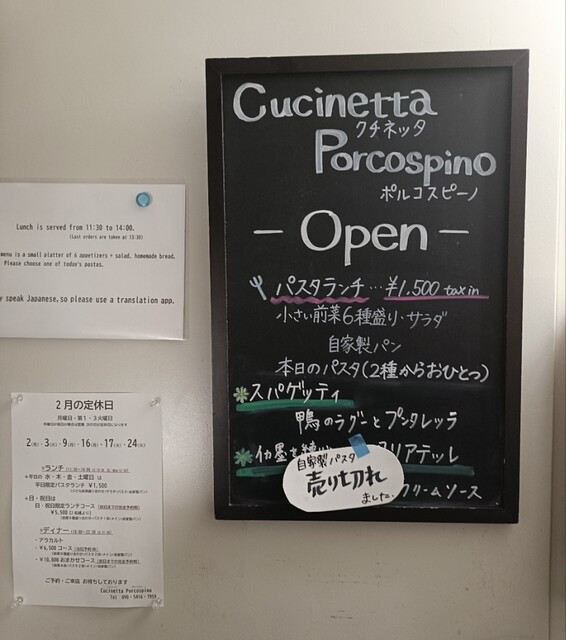 Cucinetta
クチネッタ
Porcospino
ポルコスピーノ
— Open —
パスタランチ…¥1,500 tax in
小さい前菜6種盛り・サラダ
自家製パン
本日のパスタ(2種からおひとつ)
スパゲッティ
鴨のラグーとプンタレッラ
リアテッレ
クリームソース
自家製パスタ
売り切れ
ました。
Lunch is served from 11:30 to 14:00.
(Last orders are taken at 13:30)
menu is a small platter of 6 appetizers + salad, homemade bread.
Please choose one of today's pastas.
speak Japanese, so please use a translation app.
2月の定休日
月曜日・第1・3火曜日
2(月)・3(火)・9(月)・16(月)・17(火)・24(火)
ランチ
平日の 水・木・金・土曜日 は
平日限定パスタランチ ¥1,500
日・祝日は
日・祝日限定ランチコース
¥5,500
ディナー
・アラカルト
¥6,500 コース
¥10,000 おまかせコース
ご予約・ご来店 お待ちしております
Cucinetta Porcospino